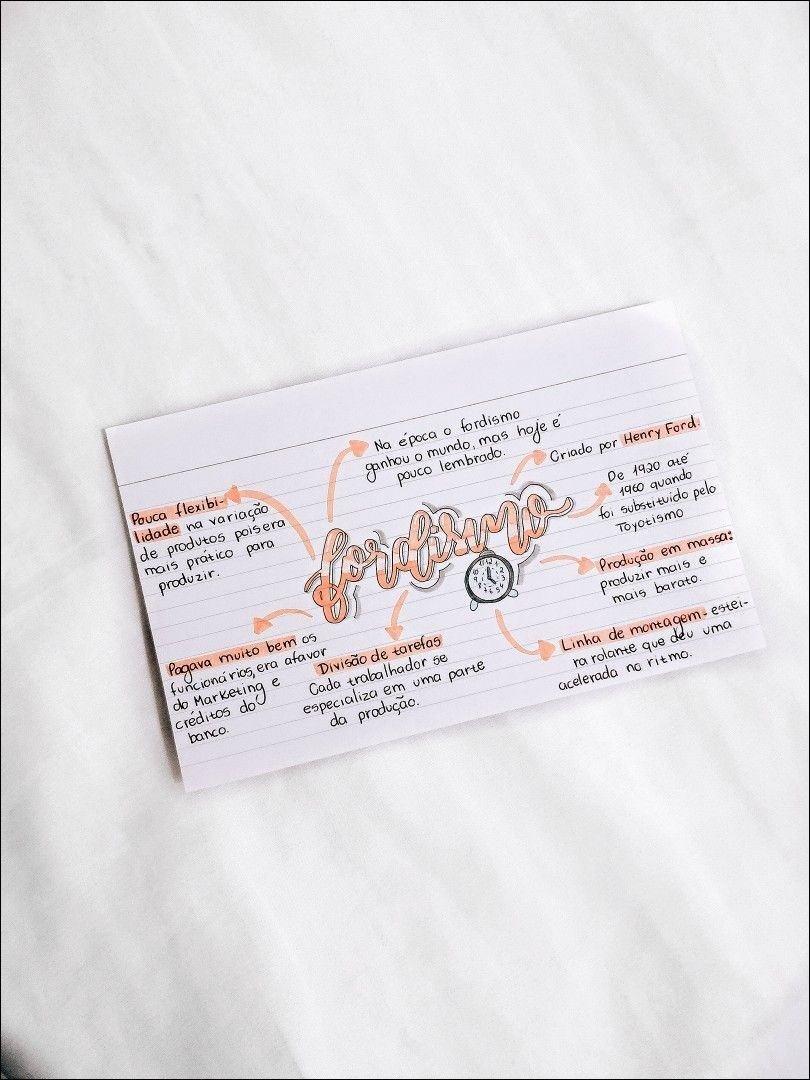 Na época o fordismo
ganhou o mundo, mas hoje é
pouco lembrado.
Criado por Henry Ford.
Pouca flexibi-
lidade na variação
de produtos pois era
mais prático para
produzir.
De 1920 até
1960 quando
foi substituído pelo
Toyotismo
fordismo
12 1 2 3 4 5 6 7 8 9 10 11
Produção em massa:
produzir mais e
mais barato.
Pagava muito bem os
funcionários, era a favor
do Marketing e
créditos do
banco.
Divisão de tarefas
Cada trabalhador se
especializa em uma parte
da produção.
Linha de montagem- estei-
ra rolante que deu uma
acelerada no ritmo.